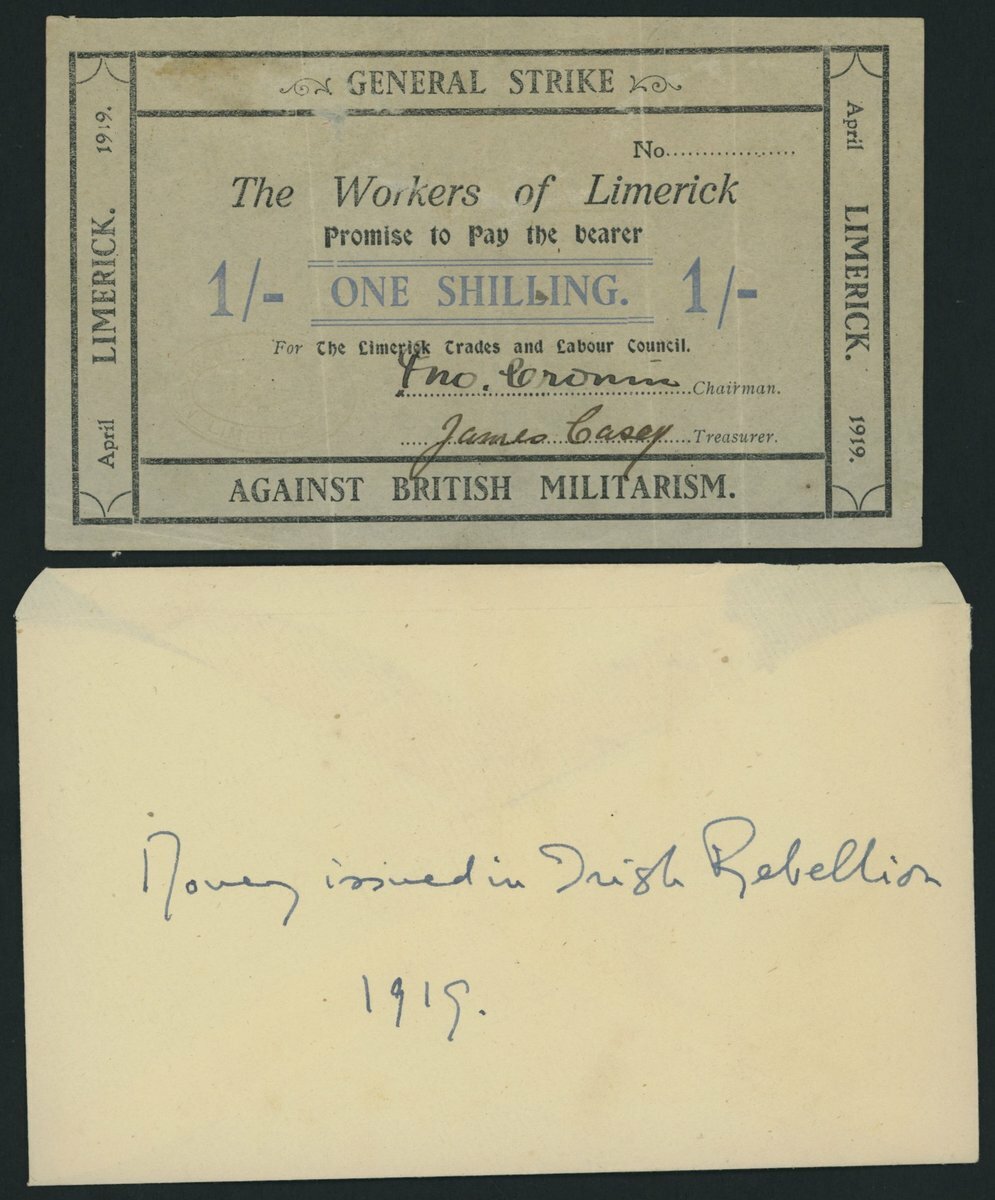 GENERAL STRIKE
No..................
The Workers of Limerick
Promise to Pay the bearer
1/- ONE SHILLING. 1/-
For The Limerick Trades and Labour Council.
Jno. Cronin Chairman.
James Casey Treasurer.
AGAINST BRITISH MILITARISM.
April LIMERICK. 1919.
April LIMERICK. 1919.
Money issued in Irish Rebellion
1919.